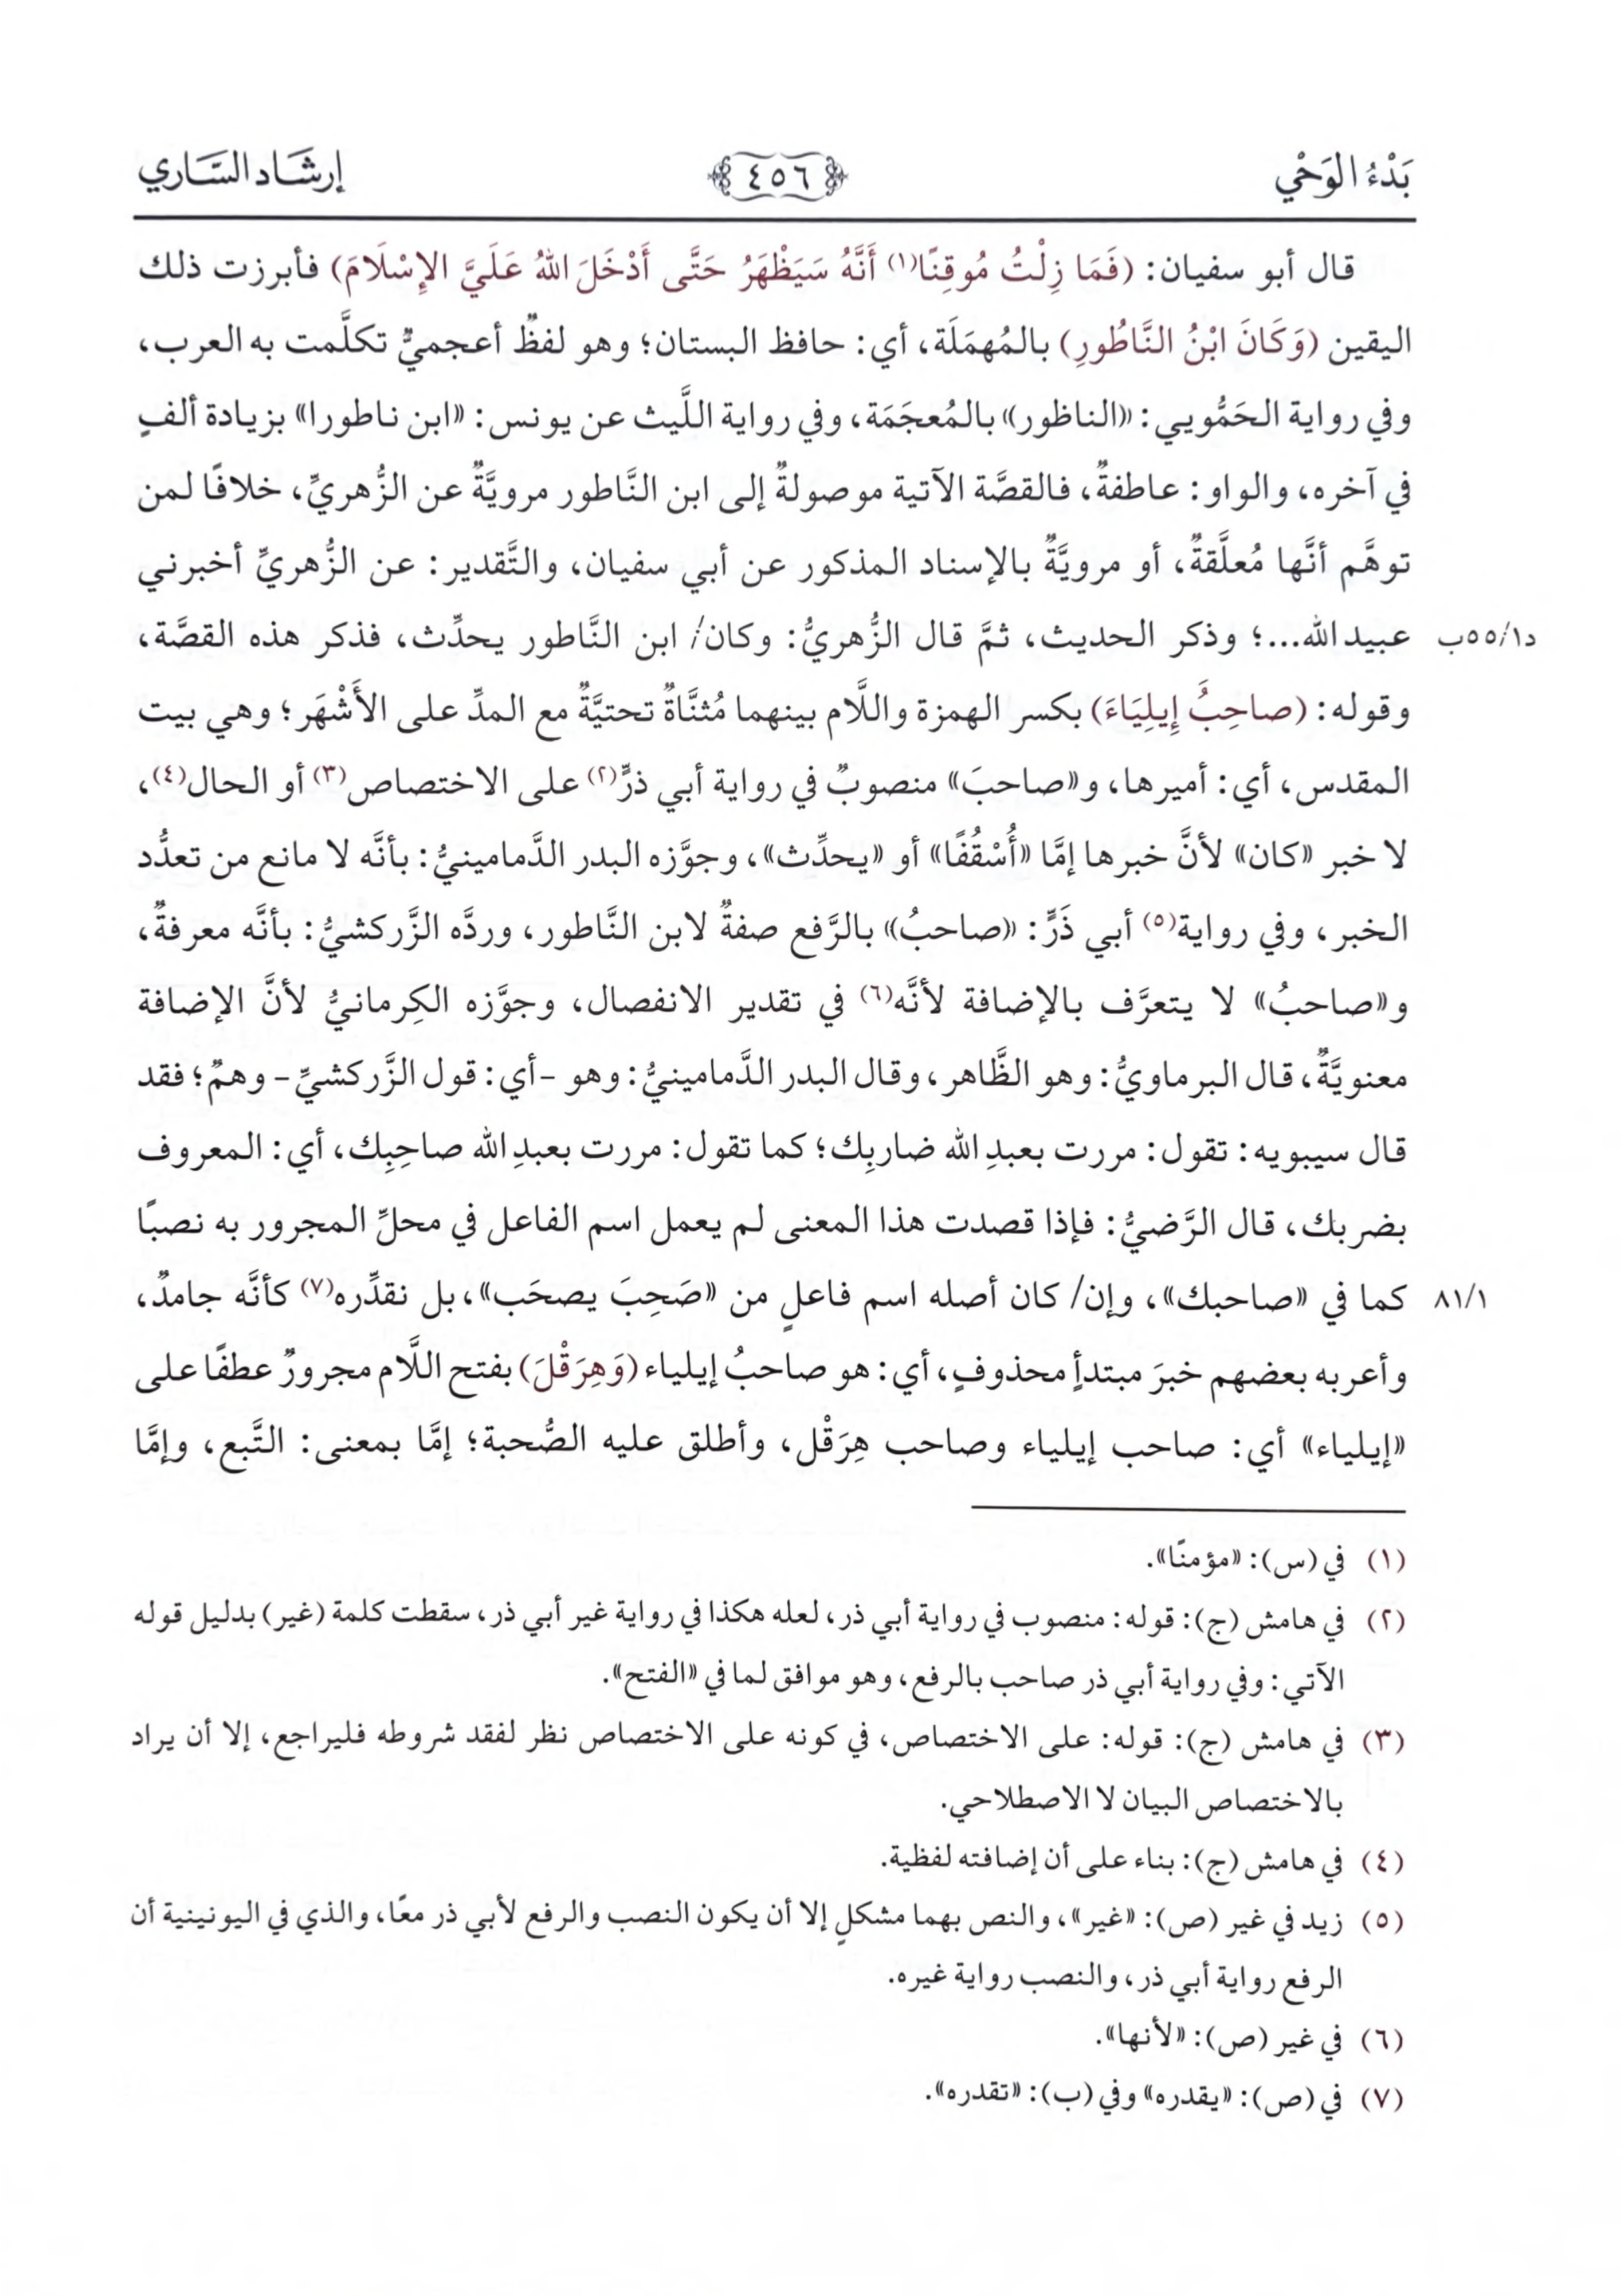 بَدْءُ الوَحْيِ
٤٥٦
إرشَاد السَّاري
قال أبو سفيان: (فَمَا زِلْتُ مُوقِنًا(١) أَنَّهُ سَيَظْهَرُ حَتَّى أَدْخَلَ اللهُ عَلَيَّ الإِسْلَامَ) فأبرزت ذلك
اليقين (وَكَانَ ابْنُ النَّاطُورِ) بالمُهمَلَة، أي: حافظ البستان؛ وهو لفظٌ أعجميٌّ تكلَّمت به العرب،
وفي رواية الحَمُّويي: «الناظور» بالمُعجَمَة، وفي رواية اللَّيث عن يونس: «ابن ناطورا» بزيادة ألفٍ
في آخره، والواو: عاطفةٌ، فالقصَّة الآتية موصولةٌ إلى ابن النَّاطور مرويَّةٌ عن الزُّهريِّ، خلافًا لمن
توهَّم أنَّها مُعلَّقةٌ، أو مرويَّةٌ بالإسناد المذكور عن أبي سفيان، والتَّقدير: عن الزُّهريِّ أخبرني
عبيد الله...؛ وذكر الحديث، ثمَّ قال الزُّهريُّ: وكان/ ابن النَّاطور يحدِّث، فذكر هذه القصَّة،
د١/٥٥ب
وقوله: (صاحِبُ إِيلِيَاءَ) بكسر الهمزة واللَّام بينهما مُثنَّاةٌ تحتيَّةٌ مع المدِّ على الأَشْهَر؛ وهي بيت
المقدس، أي: أميرها، و«صاحبَ» منصوبٌ في رواية أبي ذرٍّ(٢) على الاختصاص(٣) أو الحال(٤)،
لا خبر «كان» لأنَّ خبرها إمَّا «أُسْقُفًا» أو «يحدِّث»، وجوَّزه البدر الدَّمامينيُّ: بأنَّه لا مانع من تعدُّد
الخبر، وفي رواية(٥) أبي ذَرٍّ: «صاحبُ» بالرَّفع صفةٌ لابن النَّاطور، وردَّه الزَّركشيُّ: بأنَّه معرفةٌ،
و«صاحبُ» لا يتعرَّف بالإضافة لأنَّه(٦) في تقدير الانفصال، وجوَّزه الكِرمانيُّ لأنَّ الإضافة
معنويَّةٌ، قال البرماويُّ: وهو الظَّاهر، وقال البدر الدَّمامينيُّ: وهو -أي: قول الزَّركشيِّ- وهمٌ؛ فقد
قال سيبويه: تقول: مررت بعبدِ الله ضاربِك؛ كما تقول: مررت بعبدِ الله صاحِبِك، أي: المعروف
بضربك، قال الرَّضيُّ: فإذا قصدت هذا المعنى لم يعمل اسم الفاعل في محلِّ المجرور به نصبًا
كما في «صاحبك»، وإن/ كان أصله اسم فاعلٍ من «صَحِبَ يصحَب»، بل نقدِّره(٧) كأنَّه جامدٌ،
٨١/١
وأعربه بعضهم خبرَ مبتدأٍ محذوفٍ، أي: هو صاحبُ إيلياء (وَهِرَقْلَ) بفتح اللَّام مجرورٌ عطفًا على
«إيلياء» أي: صاحب إيلياء وصاحب هِرَقْل، وأطلق عليه الصُّحبة؛ إمَّا بمعنى: التَّبع، وإمَّا
(١) في (س): «مؤمنًا».
(٢) في هامش (ج): قوله: منصوب في رواية أبي ذر، لعله هكذا في رواية غير أبي ذر، سقطت كلمة (غير) بدليل قوله
الآتي: وفي رواية أبي ذر صاحب بالرفع، وهو موافق لما في «الفتح».
(٣) في هامش (ج): قوله: على الاختصاص، في كونه على الاختصاص نظر لفقد شروطه فليراجع، إلا أن يراد
بالاختصاص البيان لا الاصطلاحي.
(٤) في هامش (ج): بناء على أن إضافته لفظية.
(٥) زيد في غير (ص): «غير»، والنص بهما مشكلٍ إلا أن يكون النصب والرفع لأبي ذر معًا، والذي في اليونينية أن
الرفع رواية أبي ذر، والنصب رواية غيره.
(٦) في غير (ص): «لأنها».
(٧) في (ص): «يقدره» وفي (ب): «تقدره».